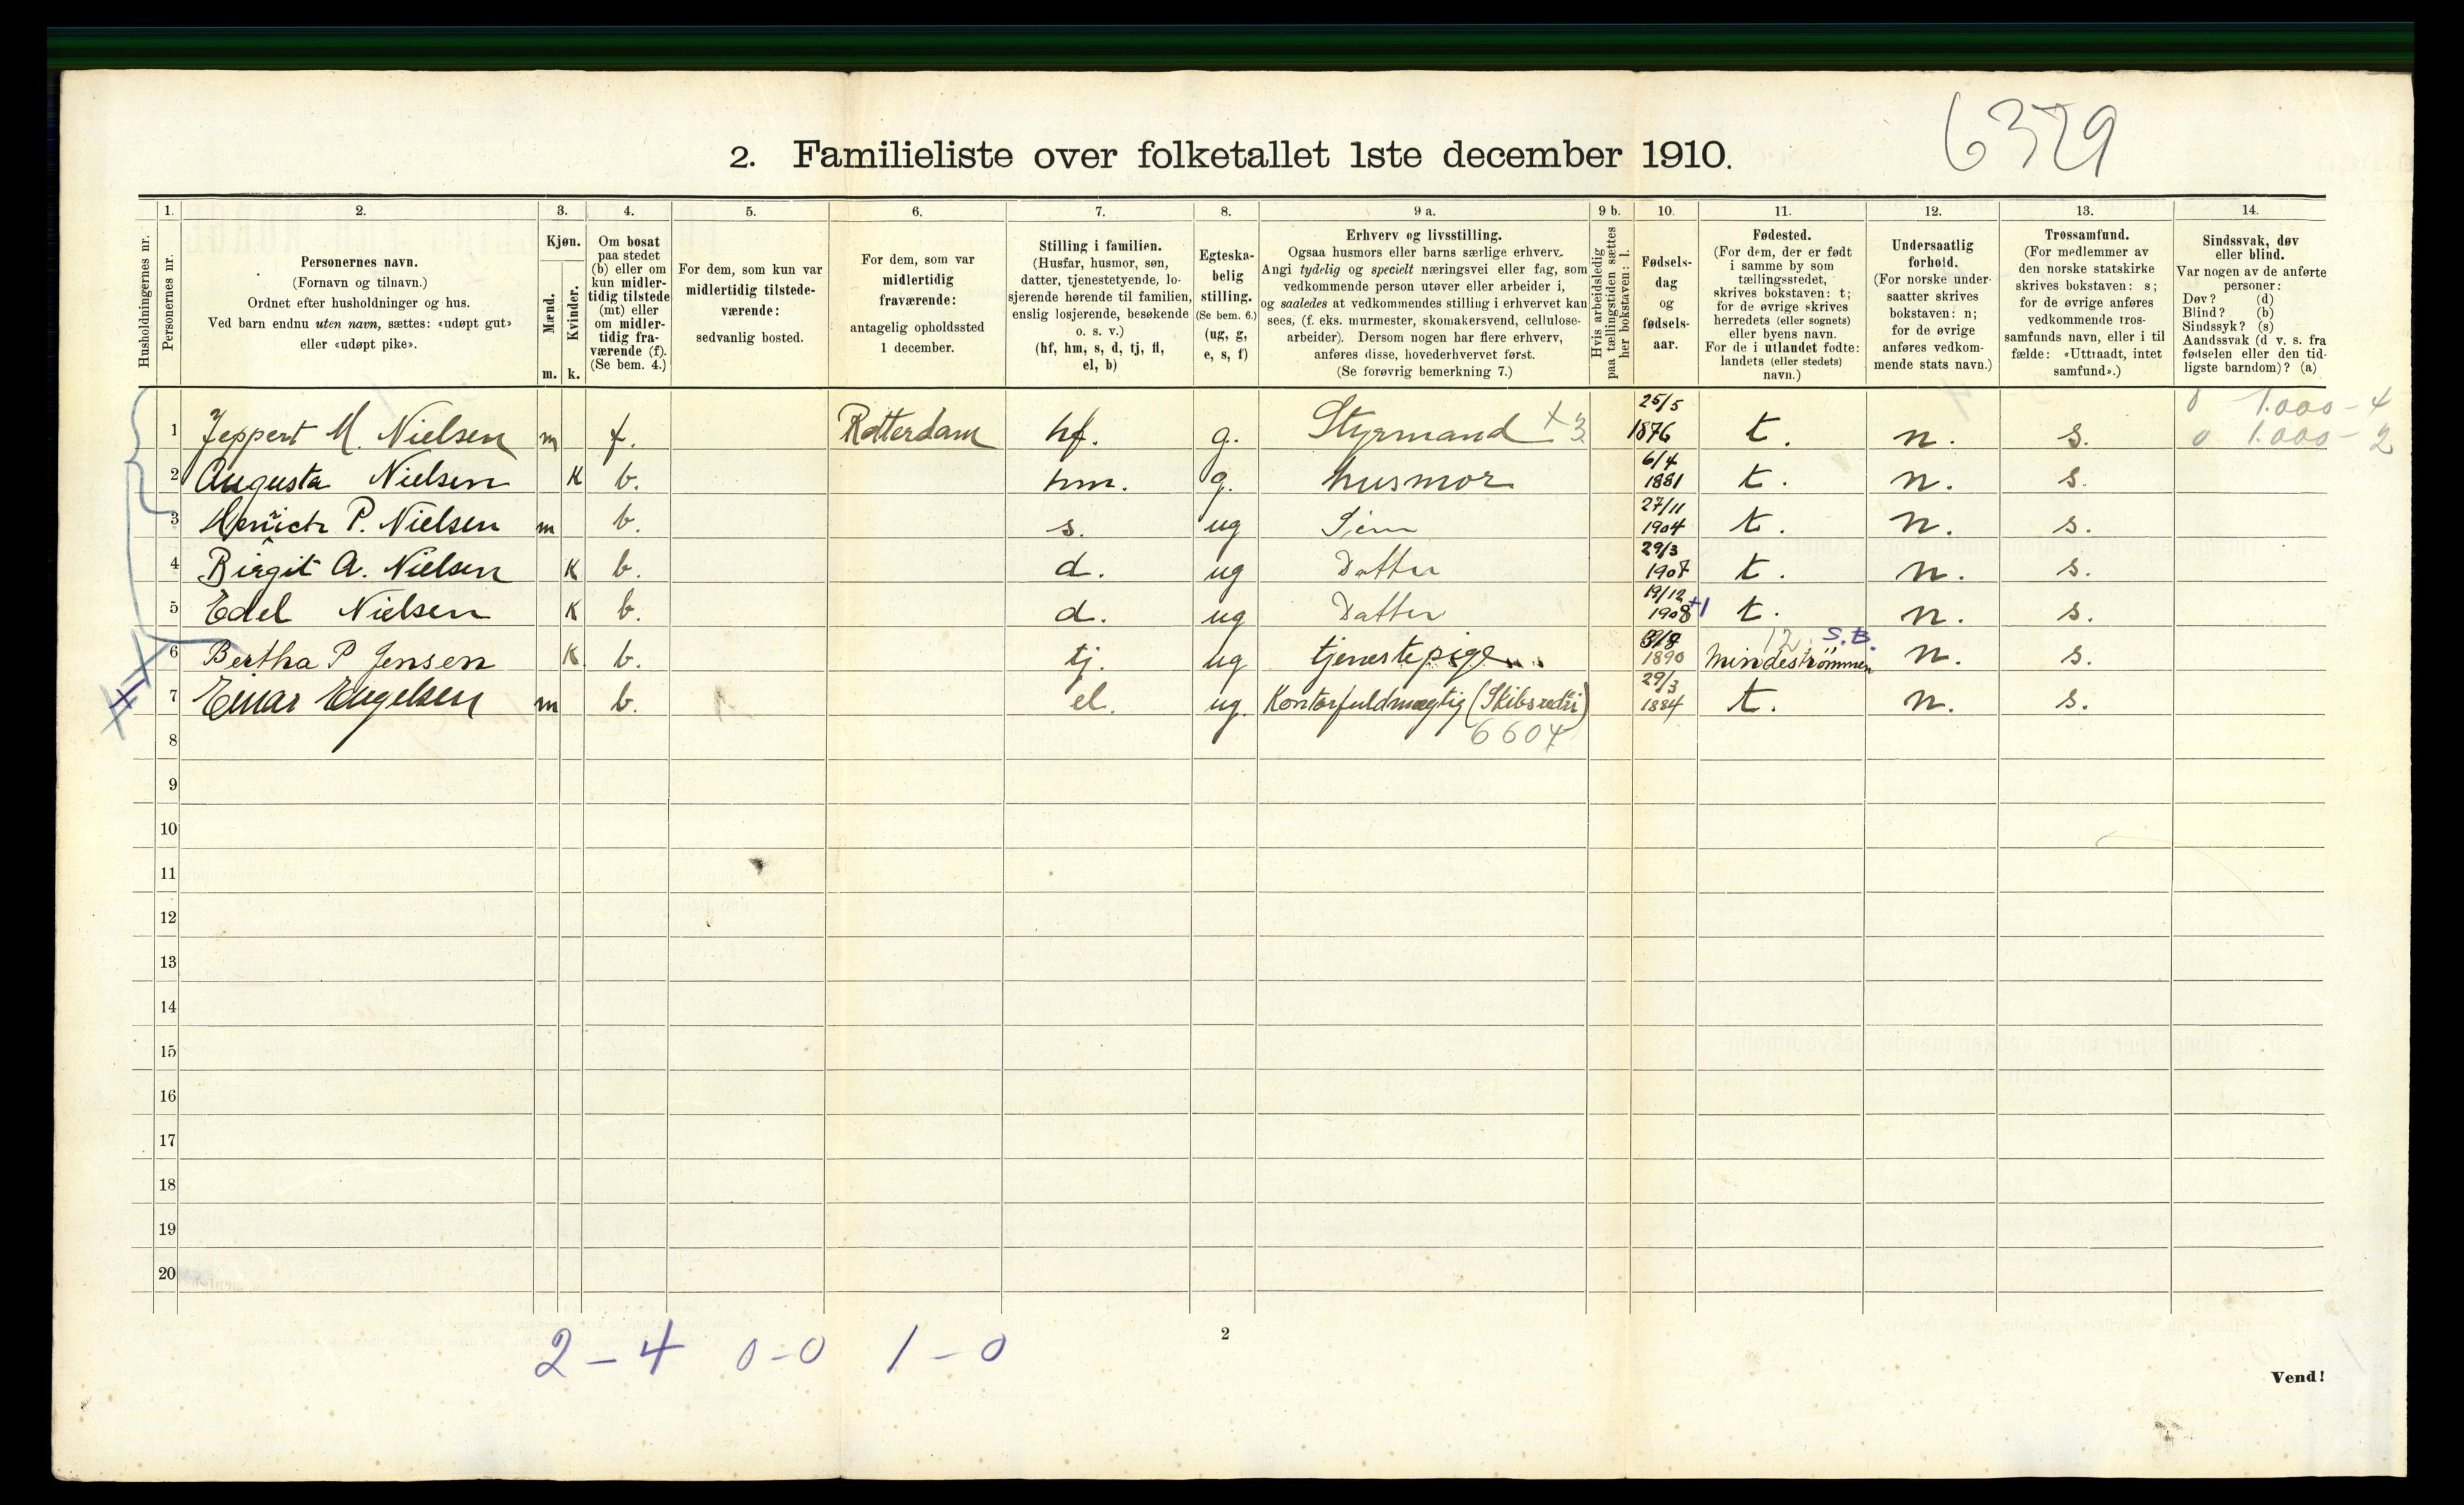 6329
2. Familieliste over folketallet 1ste december 1910.
1. 2. 3. 4. 5. 6. 7. 8. 9 a. 9 b. 10. 11. 12. 13. 14.
Husholdningernes nr.
Personernes nr.
Personernes navn.
(Fornavn og tilnavn.)
Ordnet efter husholdninger og hus.
Ved barn endnu uten navn, sættes: «udøpt gut»
eller «udøpt pike».
Kjøn.
Mænd.
Kvinder.
m. k.
Om bosat
paa stedet
(b) eller om
kun midler-
tidig tilstede
(mt) eller
om midler-
tidig fra-
værende (f).
(Se bem. 4.)
For dem, som kun var
midlertidig tilstede-
værende:
sedvanlig bosted.
For dem, som var
midlertidig
fraværende:
antagelig opholdssted
1 december.
Stilling i familien.
(Husfar, husmor, søn,
datter, tjenestetyende, lo-
sjerende hørende til familien,
enslig losjerende, besøkende
o. s. v.)
(hf, hm, s, d, tj, fl,
el, b)
Egteska-
belig
stilling.
(Se bem. 6.)
(ug, g,
e, s, f)
Erhverv og livsstilling.
Ogsaa husmors eller barns særlige erhverv.
Angi tydelig og specielt næringsvei eller fag, som
vedkommende person utøver eller arbeider i,
og saaledes at vedkommendes stilling i erhvervet kan
sees, (f. eks. murmester, skomakersvend, cellulose-
arbeider). Dersom nogen har flere erhverv,
anføres disse, hovederhvervet først.
(Se forøvrig bemerkning 7.)
Hvis arbeidsledig
paa tællingstiden sættes
her bokstaven: l.
Fødsels-
dag
og
fødsels-
aar.
Fødested.
(For dem, der er født
i samme by som
tællingsstedet,
skrives bokstaven: t;
for de øvrige skrives
herredets (eller sognets)
eller byens navn.
For de i utlandet fødte:
landets (eller stedets)
navn.)
Undersaatlig
forhold.
(For norske under-
saatter skrives
bokstaven: n;
for de øvrige
anføres vedkom-
mende stats navn.)
Trossamfund.
(For medlemmer av
den norske statskirke
skrives bokstaven: s;
for de øvrige anføres
vedkommende tros-
samfunds navn, eller i til
fælde: «Uttraadt, intet
samfund».)
Sindssvak, døv
eller blind.
Var nogen av de anførte
personer:
Døv? (d)
Blind? (b)
Sindssyk? (s)
Aandssvak (d v. s. fra
fødselen eller den tid-
ligste barndom)? (a)
1 Jeppert M. Nielsen m f. Rotterdam hf. g. Styrmand x 3 25/5 1876 t. n. s. 0 1.000 - 4
0 1.000 - 2
2 Augusta Nielsen K b. hm. g. husmor 6/4 1881 t. n. s.
3 Henrich P. Nielsen m b. s. ug Søn 27/11 1904 t. n. s.
4 Birgit A. Nielsen K b. d. ug Datter 29/3 1907 t. n. s.
5 Edel Nielsen K b. d. ug Datter 19/12 1908 +1 t. n. s.
12 S.B.
6 Bertha P Jensen K b. tj. ug tjenestepige 1890 Mindeströmmen n. s.
7 Einar Engelsen m b. el. ug. Kontorfuldmægtig (Skibsrederi) 29/3 1884 t. n. s.
8 6604
9
10
11
12
13
14
15
16
17
18
19
20
2
2 - 4 0 - 0 1 - 0
Vend!